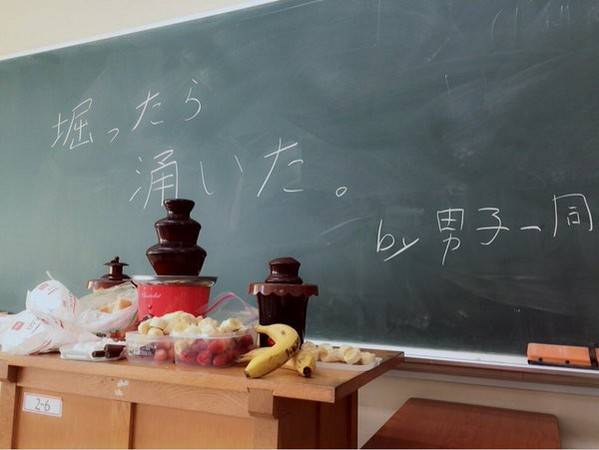 堀ったら
涌いた。
by 男子一同
2-6